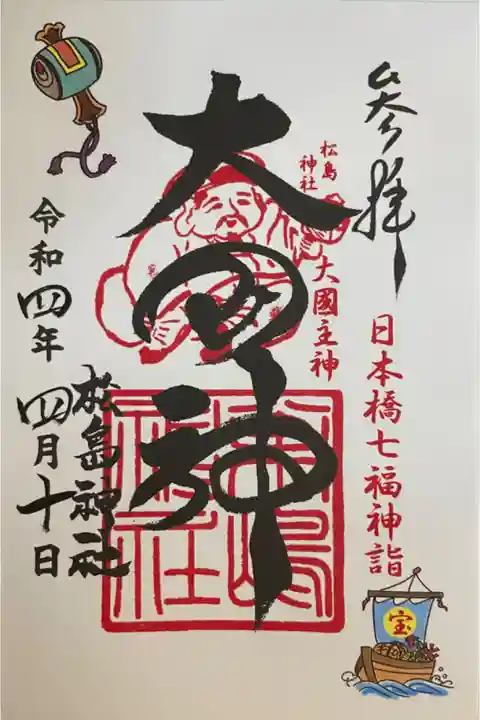 参拝
日本橋七福神詣
宝
松島
神社
大國主神
大国神
松島神社
令和四年四月十日
松島神社